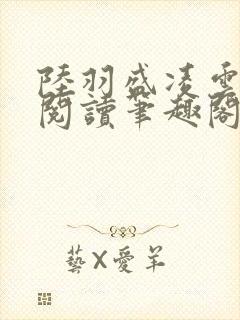 陸羽盛凌雲
閱讀筆趣閣
藝X愛羊